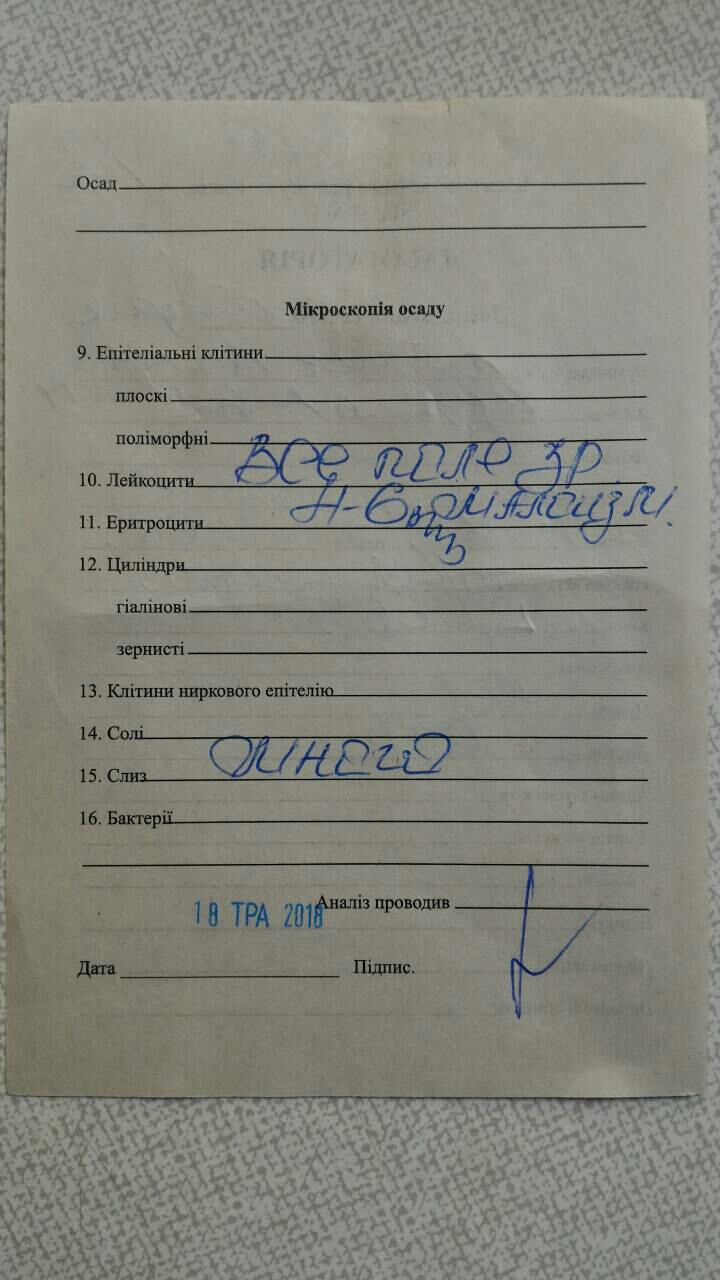 Осад
Мікроскопія осаду
9. Епітеліальні клітини
плоскі
поліморфні
все поле зр
10. Лейкоцити
11. Еритроцити
12. Циліндри
гіалінові
зернисті
13. Клітини ниркового епітелію
14. Солі
много
15. Слиз
16. Бактерії
Аналіз проводив
18 ТРА 2018
Дата Підпис.